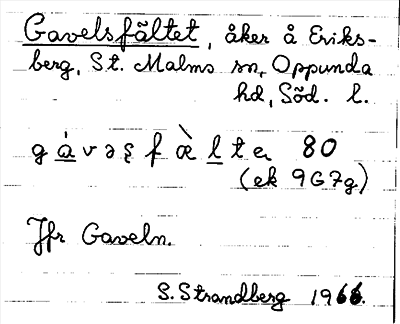 Gavelsfältet, åker å Eriks-
berg, St. Malms sn, Oppunda
hd, Söd. l.
gàvəꞩfæ̀ltəₙ 80
(ek 9G7g)
Jfr Gaveln.
S. Strandberg 1966.